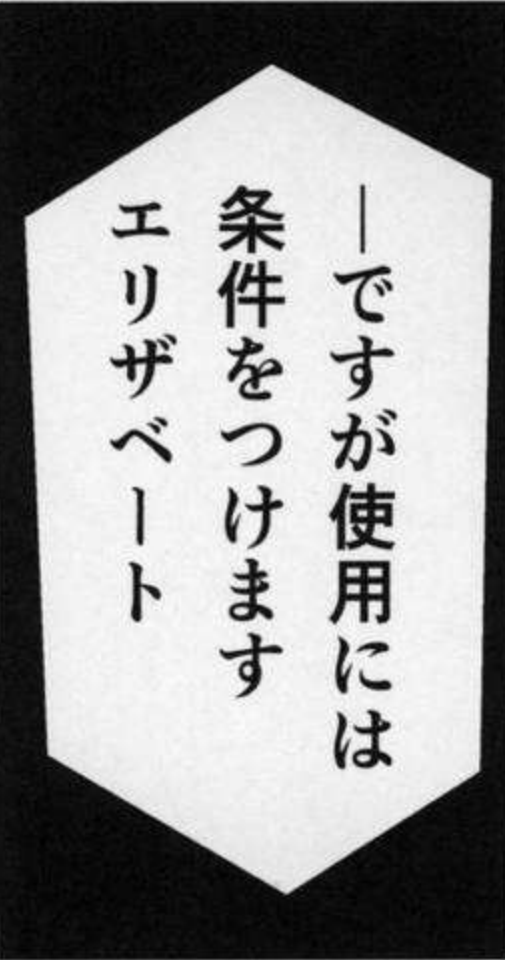 ―ですが使用には
条件をつけます
エリザベート